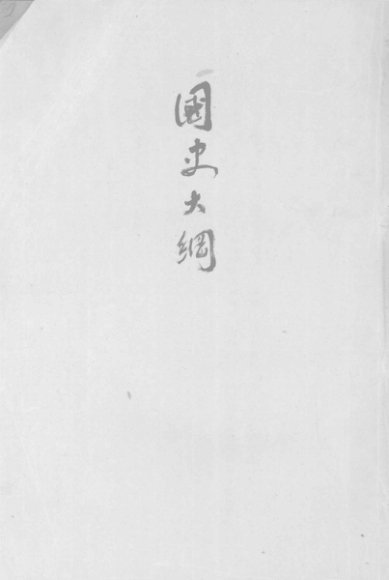 國史大綱